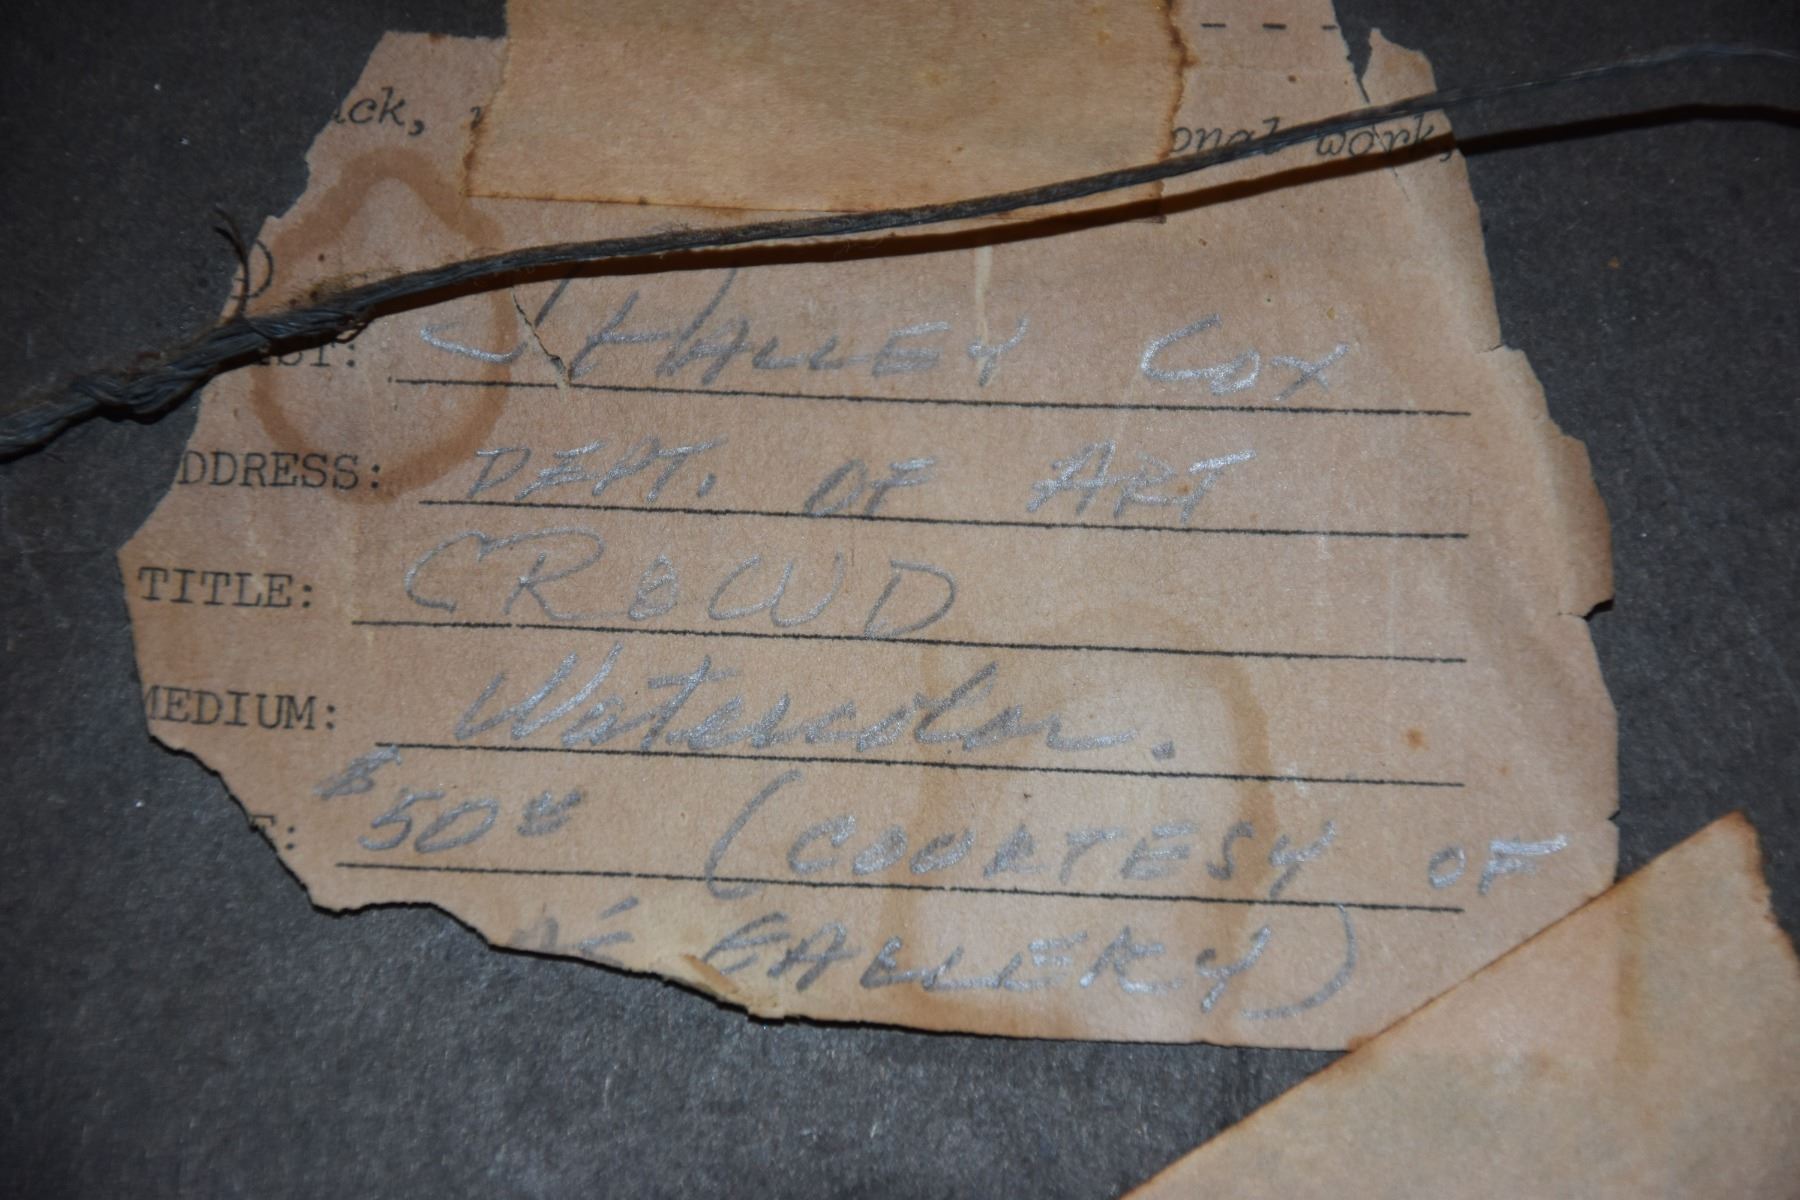 ck,
onal work,
ST: J HALLEY COX
DDRESS: DEPT. OF ART
TITLE: CROWD
MEDIUM: Watercolor.
E: $50 (COURTESY OF
GALLERY)